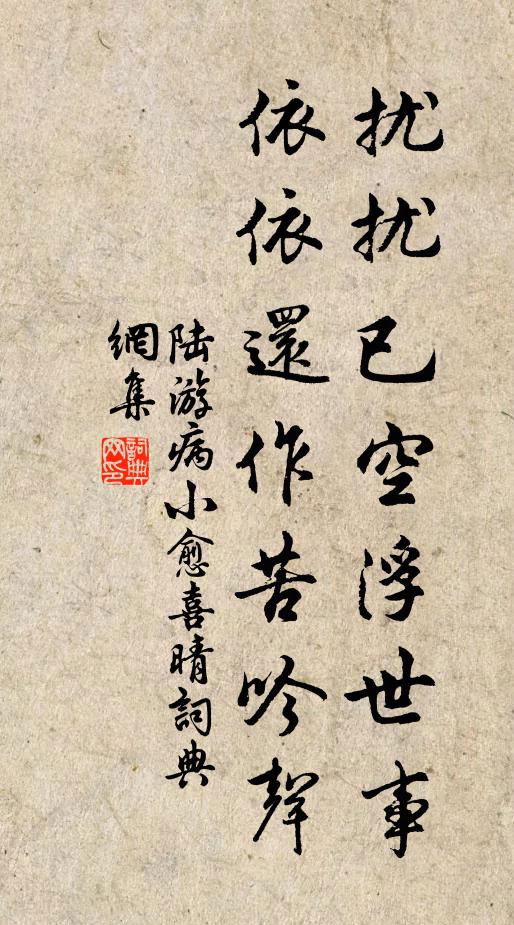 扰扰已空浮世事
依依還作苦吟聲
陆游病小愈喜晴詞典
網集
詞典网印